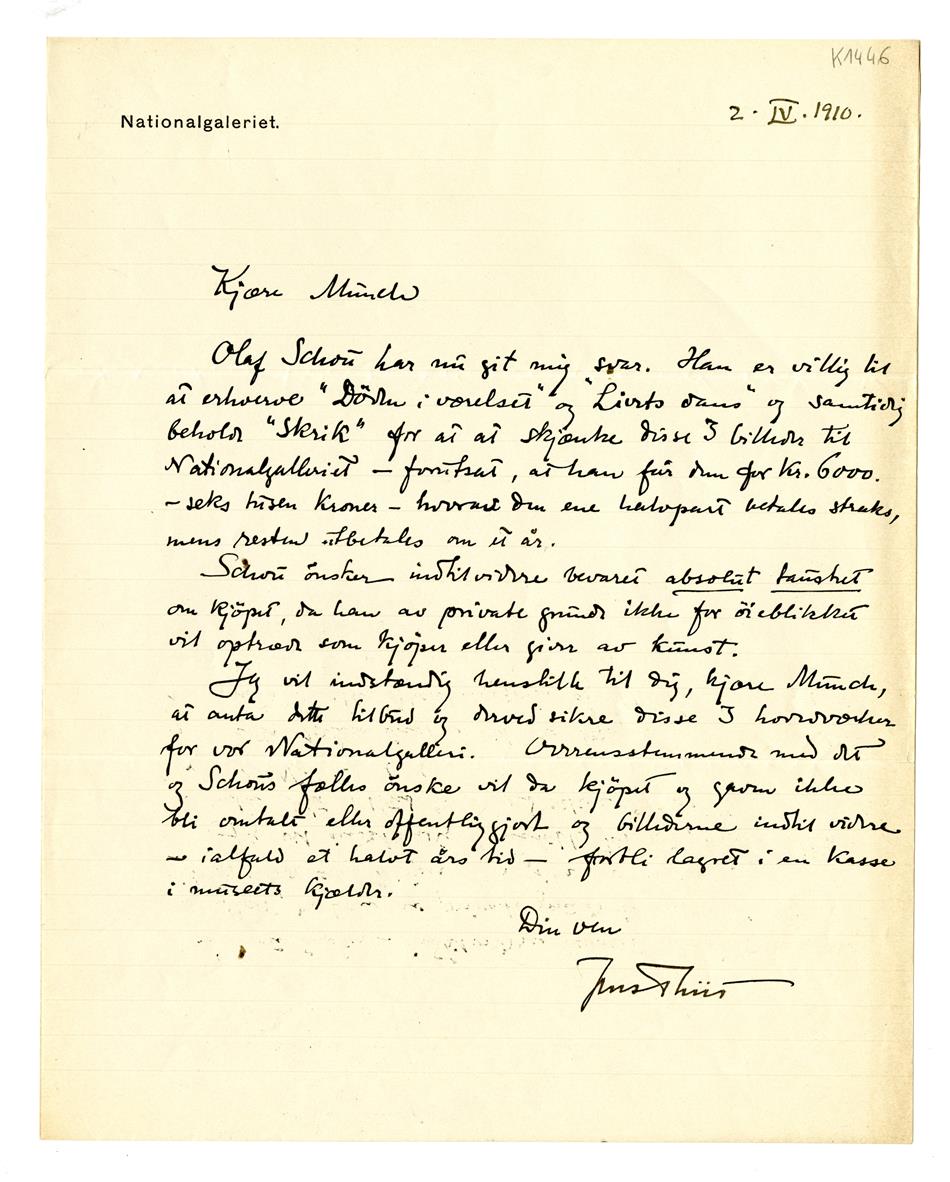 K1446
Nationalgaleriet.
2. IV. 1910.
Kjære Munch
Olaf Schou har nu git mig svar. Han er villig til
at erhverve "Döden i værelset" og "Livets dans" og samtidig
beholde "Skrik" for at at skjænke disse 3 billeder til
Nationalgalleriet – forutsat, at han får dem for Kr. 6000.
– seks tusen Kroner – hvorav den ene halvpart betales straks,
mens resten utbetales om et år.
Schou önsker indtil videre bevaret absolut taushet
om kjöpet, da han av private grunde ikke for öieblikket
vil optræde som kjöper eller giver av kunst.
Jeg vil indstændig henstille til dig, kjære Munch,
at anta dette tilbud og derved sikre disse 3 hovedværker
for vor Nationalgalleri. Overensstemmende med dit
og Schous fælles önske vil da kjöpet og gaven ikke
bli omtalt eller offentliggjort og billederne indtil videre
– ialfald et halvt års tid – forbli lagret i en Kasse
i museets kjælder.
Din ven
Jens Thiis